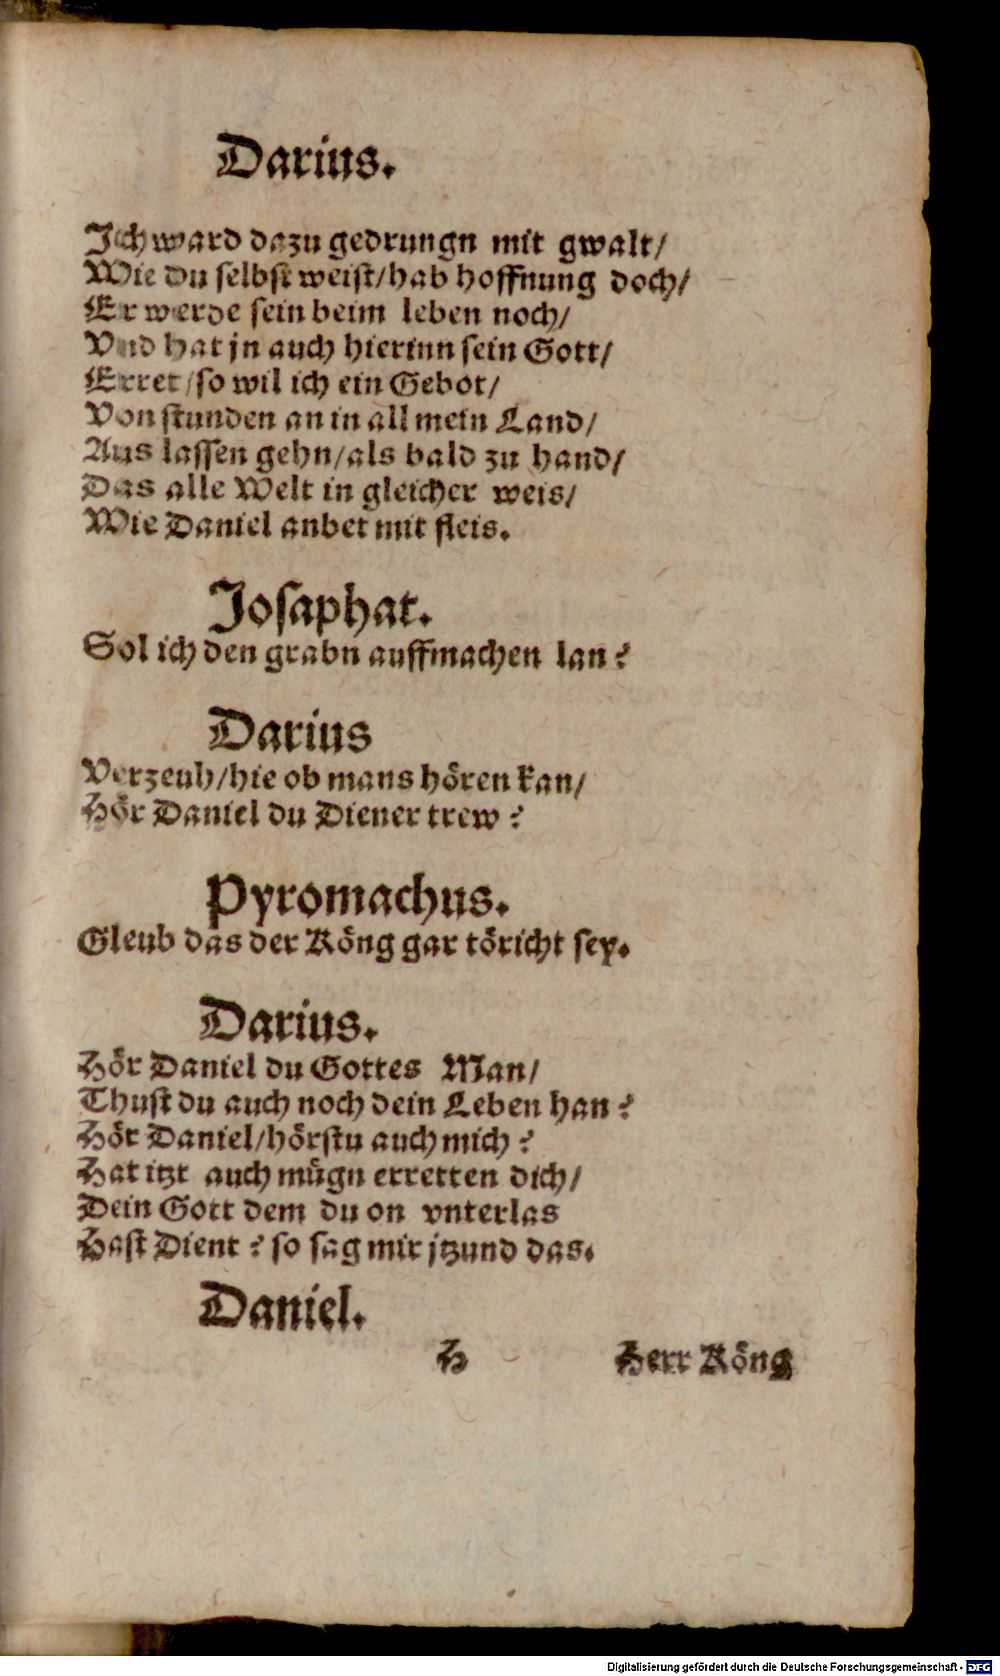 Darius.
Ich ward dazu gedrungn mit gwalt/
Wie du selbst weist/hab hoffnung doch/
Er werde sein beim leben noch/
Vnd hat jn auch hierinn sein Gott/
Erret/so wil ich ein Gebot/
Von stunden an in all mein Land/
Aus lassen gehn/als bald zu hand/
Das alle Welt in gleicher weis/
Wie Daniel anbet mit fleis.
Josaphat.
Sol ich den grabn auffmachen lan?
Darius
Verzeuh/hie ob mans hören kan/
Hör Daniel du Diener trew?
Pyromachus.
Gleub das der Köng gar töricht sey.
Darius.
Hör Daniel du Gottes Man/
Thust du auch noch dein Leben han?
Hör Daniel/hörstu auch mich?
Hat itzt auch mügn erretten dich/
Dein Gott dem du on vnterlas
Hast Dient? so sag mir jtzund das.
Daniel.
H Herr Köng
Digitalisierung gefördert durch die Deutsche Forschungsgemeinschaft - DFG